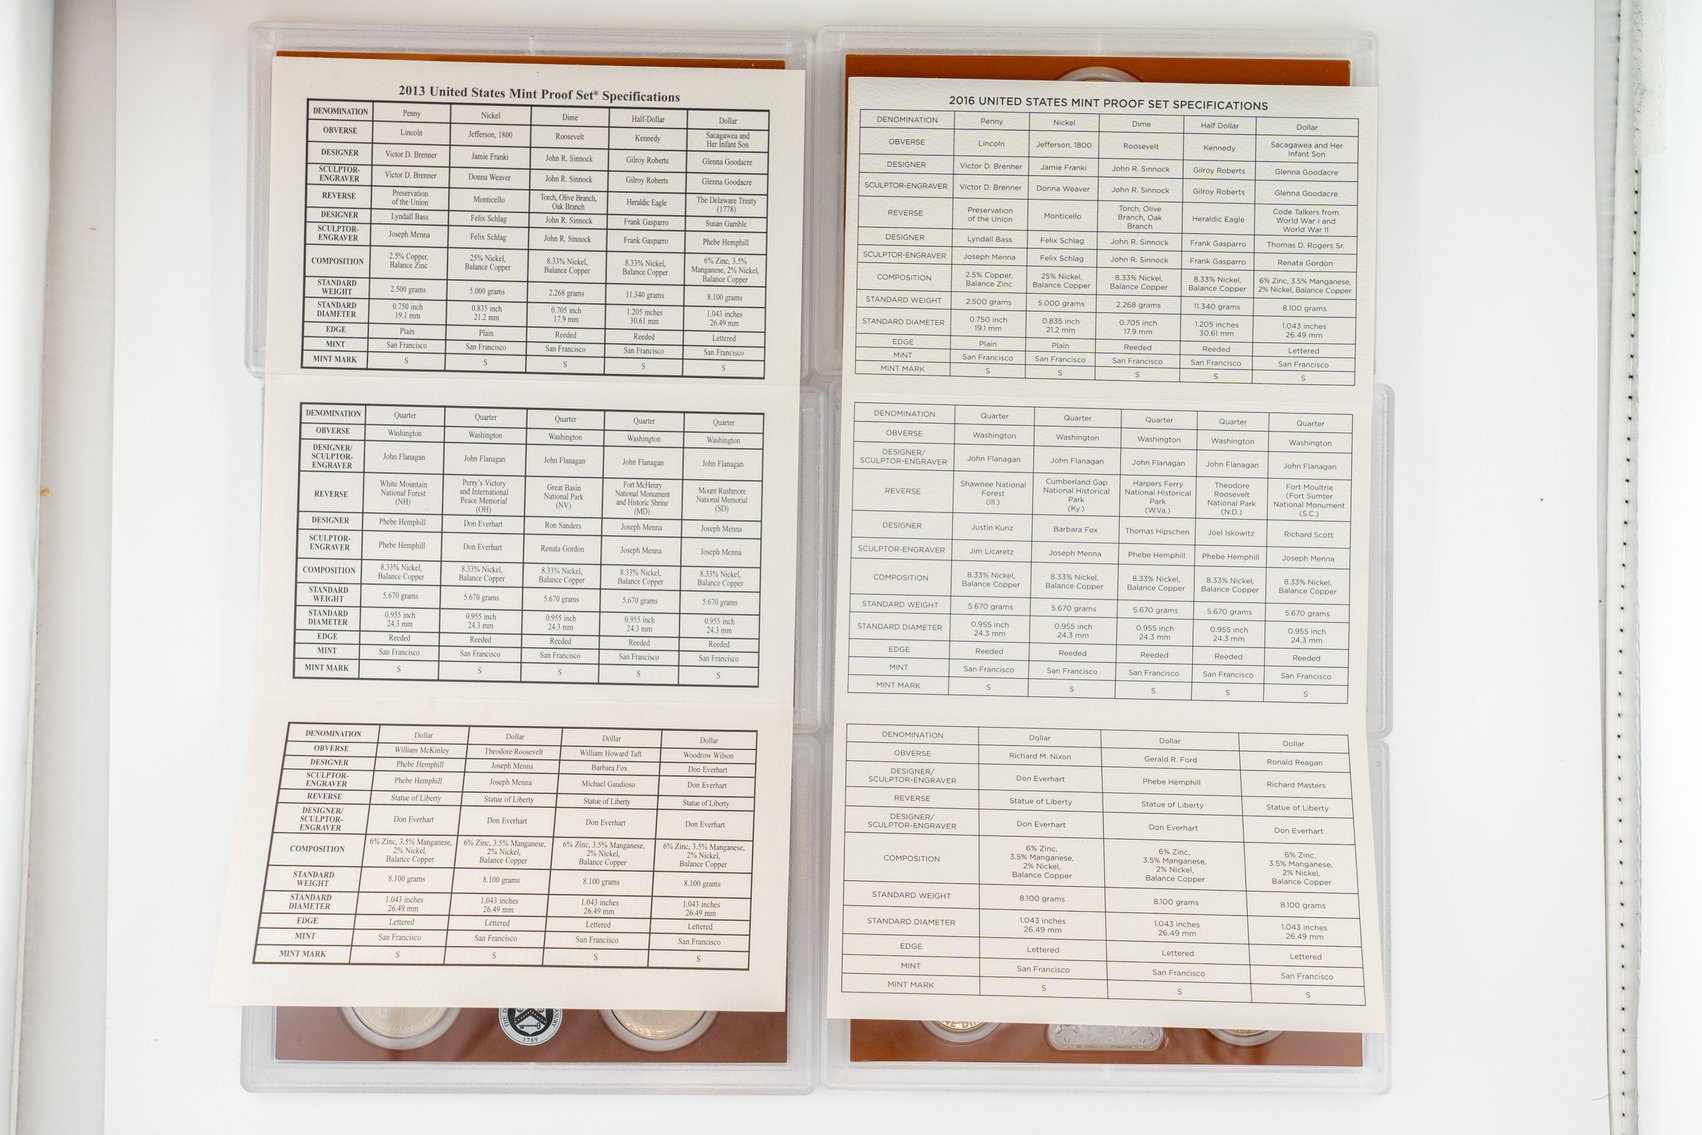 2013 United States Mint Proof Set® Specifications
DENOMINATION Penny Nickel Dime Half-Dollar Dollar
OBVERSE Lincoln Jefferson, 1800 Roosevelt Kennedy Sacagawea and Her Infant Son
DESIGNER Victor D. Brenner Jamie Franki John R. Sinnock Gilroy Roberts Glenna Goodacre
SCULPTOR-ENGRAVER Victor D. Brenner Donna Weaver John R. Sinnock Gilroy Roberts Glenna Goodacre
REVERSE Preservation of the Union Monticello Torch, Olive Branch, Oak Branch Heraldic Eagle The Delaware Treaty (1778)
DESIGNER Lyndall Bass Felix Schlag John R. Sinnock Frank Gasparro Susan Gamble
SCULPTOR-ENGRAVER Joseph Menna Felix Schlag John R. Sinnock Frank Gasparro Phebe Hemphill
COMPOSITION 2.5% Copper, Balance Zinc 25% Nickel, Balance Copper 8.33% Nickel, Balance Copper 8.33% Nickel, Balance Copper 6% Zinc, 3.5% Manganese, 2% Nickel, Balance Copper
STANDARD WEIGHT 2.500 grams 5.000 grams 2.268 grams 11.340 grams 8.100 grams
STANDARD DIAMETER 0.750 inch 19.1 mm 0.835 inch 21.2 mm 0.705 inch 17.9 mm 1.205 inches 30.61 mm 1.043 inches 26.49 mm
EDGE Plain Plain Reeded Reeded Lettered
MINT San Francisco San Francisco San Francisco San Francisco San Francisco
MINT MARK S S S S S
DENOMINATION Quarter Quarter Quarter Quarter Quarter
OBVERSE Washington Washington Washington Washington Washington
DESIGNER/ SCULPTOR-ENGRAVER John Flanagan John Flanagan John Flanagan John Flanagan John Flanagan
REVERSE White Mountain National Forest (NH) Perry's Victory and International Peace Memorial (OH) Great Basin National Park (NV) Fort McHenry National Monument and Historic Shrine (MD) Mount Rushmore National Memorial (SD)
DESIGNER Phebe Hemphill Don Everhart Ron Sanders Joseph Menna Joseph Menna
SCULPTOR-ENGRAVER Phebe Hemphill Don Everhart Renata Gordon Joseph Menna Joseph Menna
COMPOSITION 8.33% Nickel, Balance Copper 8.33% Nickel, Balance Copper 8.33% Nickel, Balance Copper 8.33% Nickel, Balance Copper 8.33% Nickel, Balance Copper
STANDARD WEIGHT 5.670 grams 5.670 grams 5.670 grams 5.670 grams 5.670 grams
STANDARD DIAMETER 0.955 inch 24.3 mm 0.955 inch 24.3 mm 0.955 inch 24.3 mm 0.955 inch 24.3 mm 0.955 inch 24.3 mm
EDGE Reeded Reeded Reeded Reeded Reeded
MINT San Francisco San Francisco San Francisco San Francisco San Francisco
MINT MARK S S S S S
DENOMINATION Dollar Dollar Dollar Dollar
OBVERSE William McKinley Theodore Roosevelt William Howard Taft Woodrow Wilson
DESIGNER Phebe Hemphill Joseph Menna Barbara Fox Don Everhart
SCULPTOR-ENGRAVER Phebe Hemphill Joseph Menna Michael Gaudioso Don Everhart
REVERSE Statue of Liberty Statue of Liberty Statue of Liberty Statue of Liberty
DESIGNER/ SCULPTOR-ENGRAVER Don Everhart Don Everhart Don Everhart Don Everhart
COMPOSITION 6% Zinc, 3.5% Manganese, 2% Nickel, Balance Copper 6% Zinc, 3.5% Manganese, 2% Nickel, Balance Copper 6% Zinc, 3.5% Manganese, 2% Nickel, Balance Copper 6% Zinc, 3.5% Manganese, 2% Nickel, Balance Copper
STANDARD WEIGHT 8.100 grams 8.100 grams 8.100 grams 8.100 grams
STANDARD DIAMETER 1.043 inches 26.49 mm 1.043 inches 26.49 mm 1.043 inches 26.49 mm 1.043 inches 26.49 mm
EDGE Lettered Lettered Lettered Lettered
MINT San Francisco San Francisco San Francisco San Francisco
MINT MARK S S S S
1789
2016 UNITED STATES MINT PROOF SET SPECIFICATIONS
DENOMINATION Penny Nickel Dime Half Dollar Dollar
OBVERSE Lincoln Jefferson, 1800 Roosevelt Kennedy Sacagawea and Her Infant Son
DESIGNER Victor D. Brenner Jamie Franki John R. Sinnock Gilroy Roberts Glenna Goodacre
SCULPTOR-ENGRAVER Victor D. Brenner Donna Weaver John R. Sinnock Gilroy Roberts Glenna Goodacre
REVERSE Preservation of the Union Monticello Torch, Olive Branch, Oak Branch Heraldic Eagle Code Talkers from World War I and World War II
DESIGNER Lyndall Bass Felix Schlag John R. Sinnock Frank Gasparro Thomas D. Rogers Sr.
SCULPTOR-ENGRAVER Joseph Menna Felix Schlag John R. Sinnock Frank Gasparro Renata Gordon
COMPOSITION 2.5% Copper, Balance Zinc 25% Nickel, Balance Copper 8.33% Nickel, Balance Copper 8.33% Nickel, Balance Copper 6% Zinc, 3.5% Manganese, 2% Nickel, Balance Copper
STANDARD WEIGHT 2.500 grams 5.000 grams 2.268 grams 11.340 grams 8.100 grams
STANDARD DIAMETER 0.750 inch 19.1 mm 0.835 inch 21.2 mm 0.705 inch 17.9 mm 1.205 inches 30.61 mm 1.043 inches 26.49 mm
EDGE Plain Plain Reeded Reeded Lettered
MINT San Francisco San Francisco San Francisco San Francisco San Francisco
MINT MARK S S S S S
DENOMINATION Quarter Quarter Quarter Quarter Quarter
OBVERSE Washington Washington Washington Washington Washington
DESIGNER/ SCULPTOR-ENGRAVER John Flanagan John Flanagan John Flanagan John Flanagan John Flanagan
REVERSE Shawnee National Forest (Ill.) Cumberland Gap National Historical Park (Ky.) Harpers Ferry National Historical Park (W.Va.) Theodore Roosevelt National Park (N.D.) Fort Moultrie (Fort Sumter National Monument (S.C.)
DESIGNER Justin Kunz Barbara Fox Thomas Hipschen Joel Iskowitz Richard Scott
SCULPTOR-ENGRAVER Jim Licaretz Joseph Menna Phebe Hemphill Phebe Hemphill Joseph Menna
COMPOSITION 8.33% Nickel, Balance Copper 8.33% Nickel, Balance Copper 8.33% Nickel, Balance Copper 8.33% Nickel, Balance Copper 8.33% Nickel, Balance Copper
STANDARD WEIGHT 5.670 grams 5.670 grams 5.670 grams 5.670 grams 5.670 grams
STANDARD DIAMETER 0.955 inch 24.3 mm 0.955 inch 24.3 mm 0.955 inch 24.3 mm 0.955 inch 24.3 mm 0.955 inch 24.3 mm
EDGE Reeded Reeded Reeded Reeded Reeded
MINT San Francisco San Francisco San Francisco San Francisco San Francisco
MINT MARK S S S S S
DENOMINATION Dollar Dollar Dollar
OBVERSE Richard M. Nixon Gerald R. Ford Ronald Reagan
DESIGNER/ SCULPTOR-ENGRAVER Don Everhart Phebe Hemphill Richard Masters
REVERSE Statue of Liberty Statue of Liberty Statue of Liberty
DESIGNER/ SCULPTOR-ENGRAVER Don Everhart Don Everhart Don Everhart
COMPOSITION 6% Zinc, 3.5% Manganese, 2% Nickel, Balance Copper 6% Zinc, 3.5% Manganese, 2% Nickel, Balance Copper 6% Zinc, 3.5% Manganese, 2% Nickel, Balance Copper
STANDARD WEIGHT 8.100 grams 8.100 grams 8.100 grams
STANDARD DIAMETER 1.043 inches 26.49 mm 1.043 inches 26.49 mm 1.043 inches 26.49 mm
EDGE Lettered Lettered Lettered
MINT San Francisco San Francisco San Francisco
MINT MARK S S S